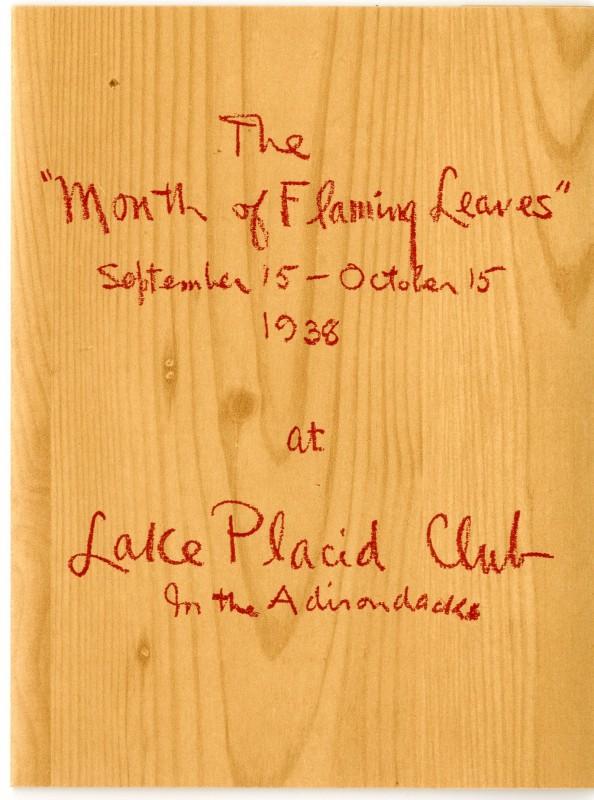 The
"Month of Flaming Leaves"
September 15 - October 15
1938
at
Lake Placid Club
In the Adirondacks